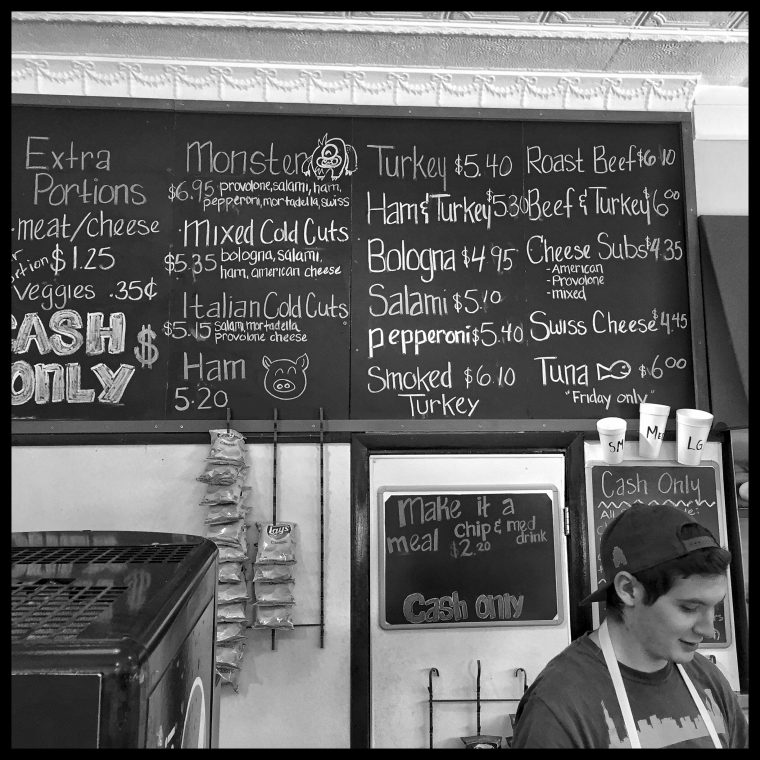 Extra
Portions
·meat/cheese
$1.25
Veggies .35¢
CASH
ONLY
$
Monster
$6.95 provolone, salami, ham,
pepperoni, mortadella, swiss
·Mixed Cold Cuts
$5.35 bologna, salami,
ham, american cheese
Italian Cold Cuts
$5.15 salami, mortadella
provolone cheese
Ham
5.20
Turkey $5.40
Ham & Turkey $5.30
Bologna $4.95
Salami $5.10
pepperoni $5.40
Smoked $6.10
Turkey
Roast Beef $6.10
Beef & Turkey $6.00
Cheese Subs $4.35
-American
-Provolone
-mixed
Swiss Cheese $4.45
Tuna $6.00
"Friday only"
SM
Med
LG
Lay's
Make it a
meal chip & med
drink
$2.20
Cash only
Cash Only